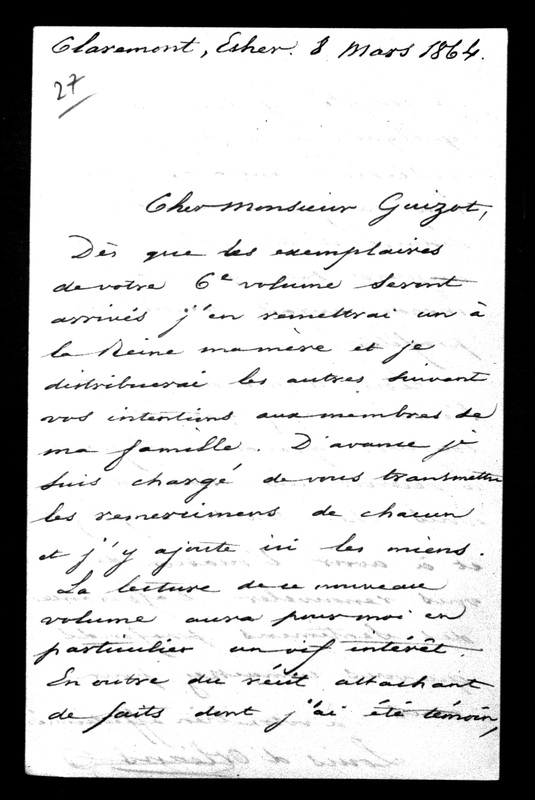 Claremont, Esher. 8 Mars 1864.
27
Cher Monsieur Guizot,
Dès que les exemplaires
de votre 6e volume seront
arrivés j'en remettrai un à
la Reine ma mère et je
distribuerai les autres suivant
vos intentions aux membres de
ma famille. D'avance je
suis chargé de vous transmettre
les remercimens de chacun
et j'y ajoute ici les miens.
La lecture de ce nouveau
volume aura pour moi en
particulier un vif intérêt.
En outre du récit attachant
de faits dont j'ai été témoin,